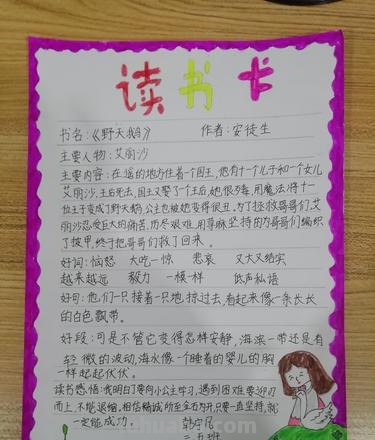 读书卡
书名:《野天鹅》 作者:安徒生
主要人物:艾丽沙
主要内容:在遥的地方住着一个国王,他有十一个儿子和一个女儿
艾丽沙,王后死去,国王又娶了个王后,她很歹毒,用魔法将十一
位王子变成了野天鹅,公主也被她变得很丑。为了拯救哥哥们,艾
丽沙忍受巨大的痛苦,历尽艰难,用荨麻坚持的为哥哥们编织
了披甲,终于把哥哥们救了回来。
好词:恼怒 大吃一惊 悲哀 又大又结实
越来越远 毅力 一模一样 低声私语
好句:他们一只接着一只地掠过去,看起来像一条长长
的白色飘带。
好段:可是不管它变得怎样安静,海滨一带还是有
轻微的波动,海水像一个睡着的婴儿的胸
一样起起伏伏。
读书感悟:我明白了要向小公主学习,遇到困难要迎刃
而上,不能退缩,相信精诚所至金石为开,只要一直坚持,就
一定能成功。
二五班